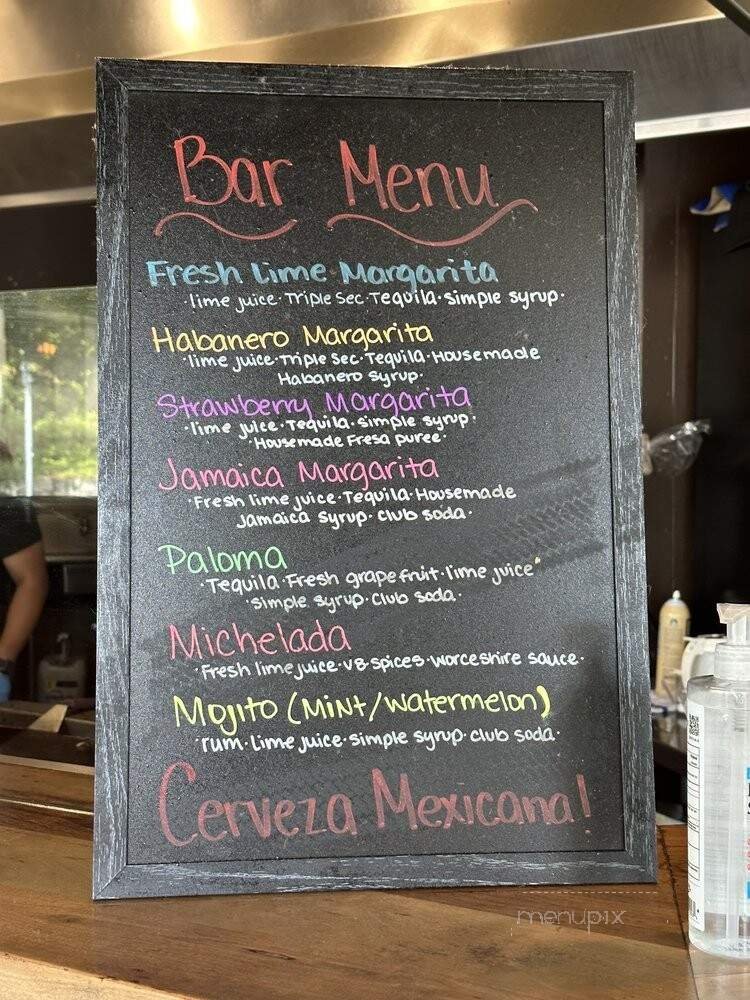 Bar Menu
Fresh Lime Margarita
·lime juice·Triple Sec·Tequila·simple syrup·
Habanero Margarita
·lime juice·Triple Sec·Tequila·Housemade
Habanero syrup·
Strawberry Margarita
·lime juice·Tequila·simple syrup·
·Housemade Fresa puree·
Jamaica Margarita
·Fresh lime juice·Tequila·Housemade
Jamaica syrup·club soda·
Paloma
·Tequila·Fresh grapefruit·lime juice·
·simple syrup·club soda·
Michelada
·Fresh lime juice·V8·spices·worceshire sauce·
Mojito (Mint/Watermelon)
·rum·lime juice·simple syrup·club soda·
Cerveza Mexicana!
menupix